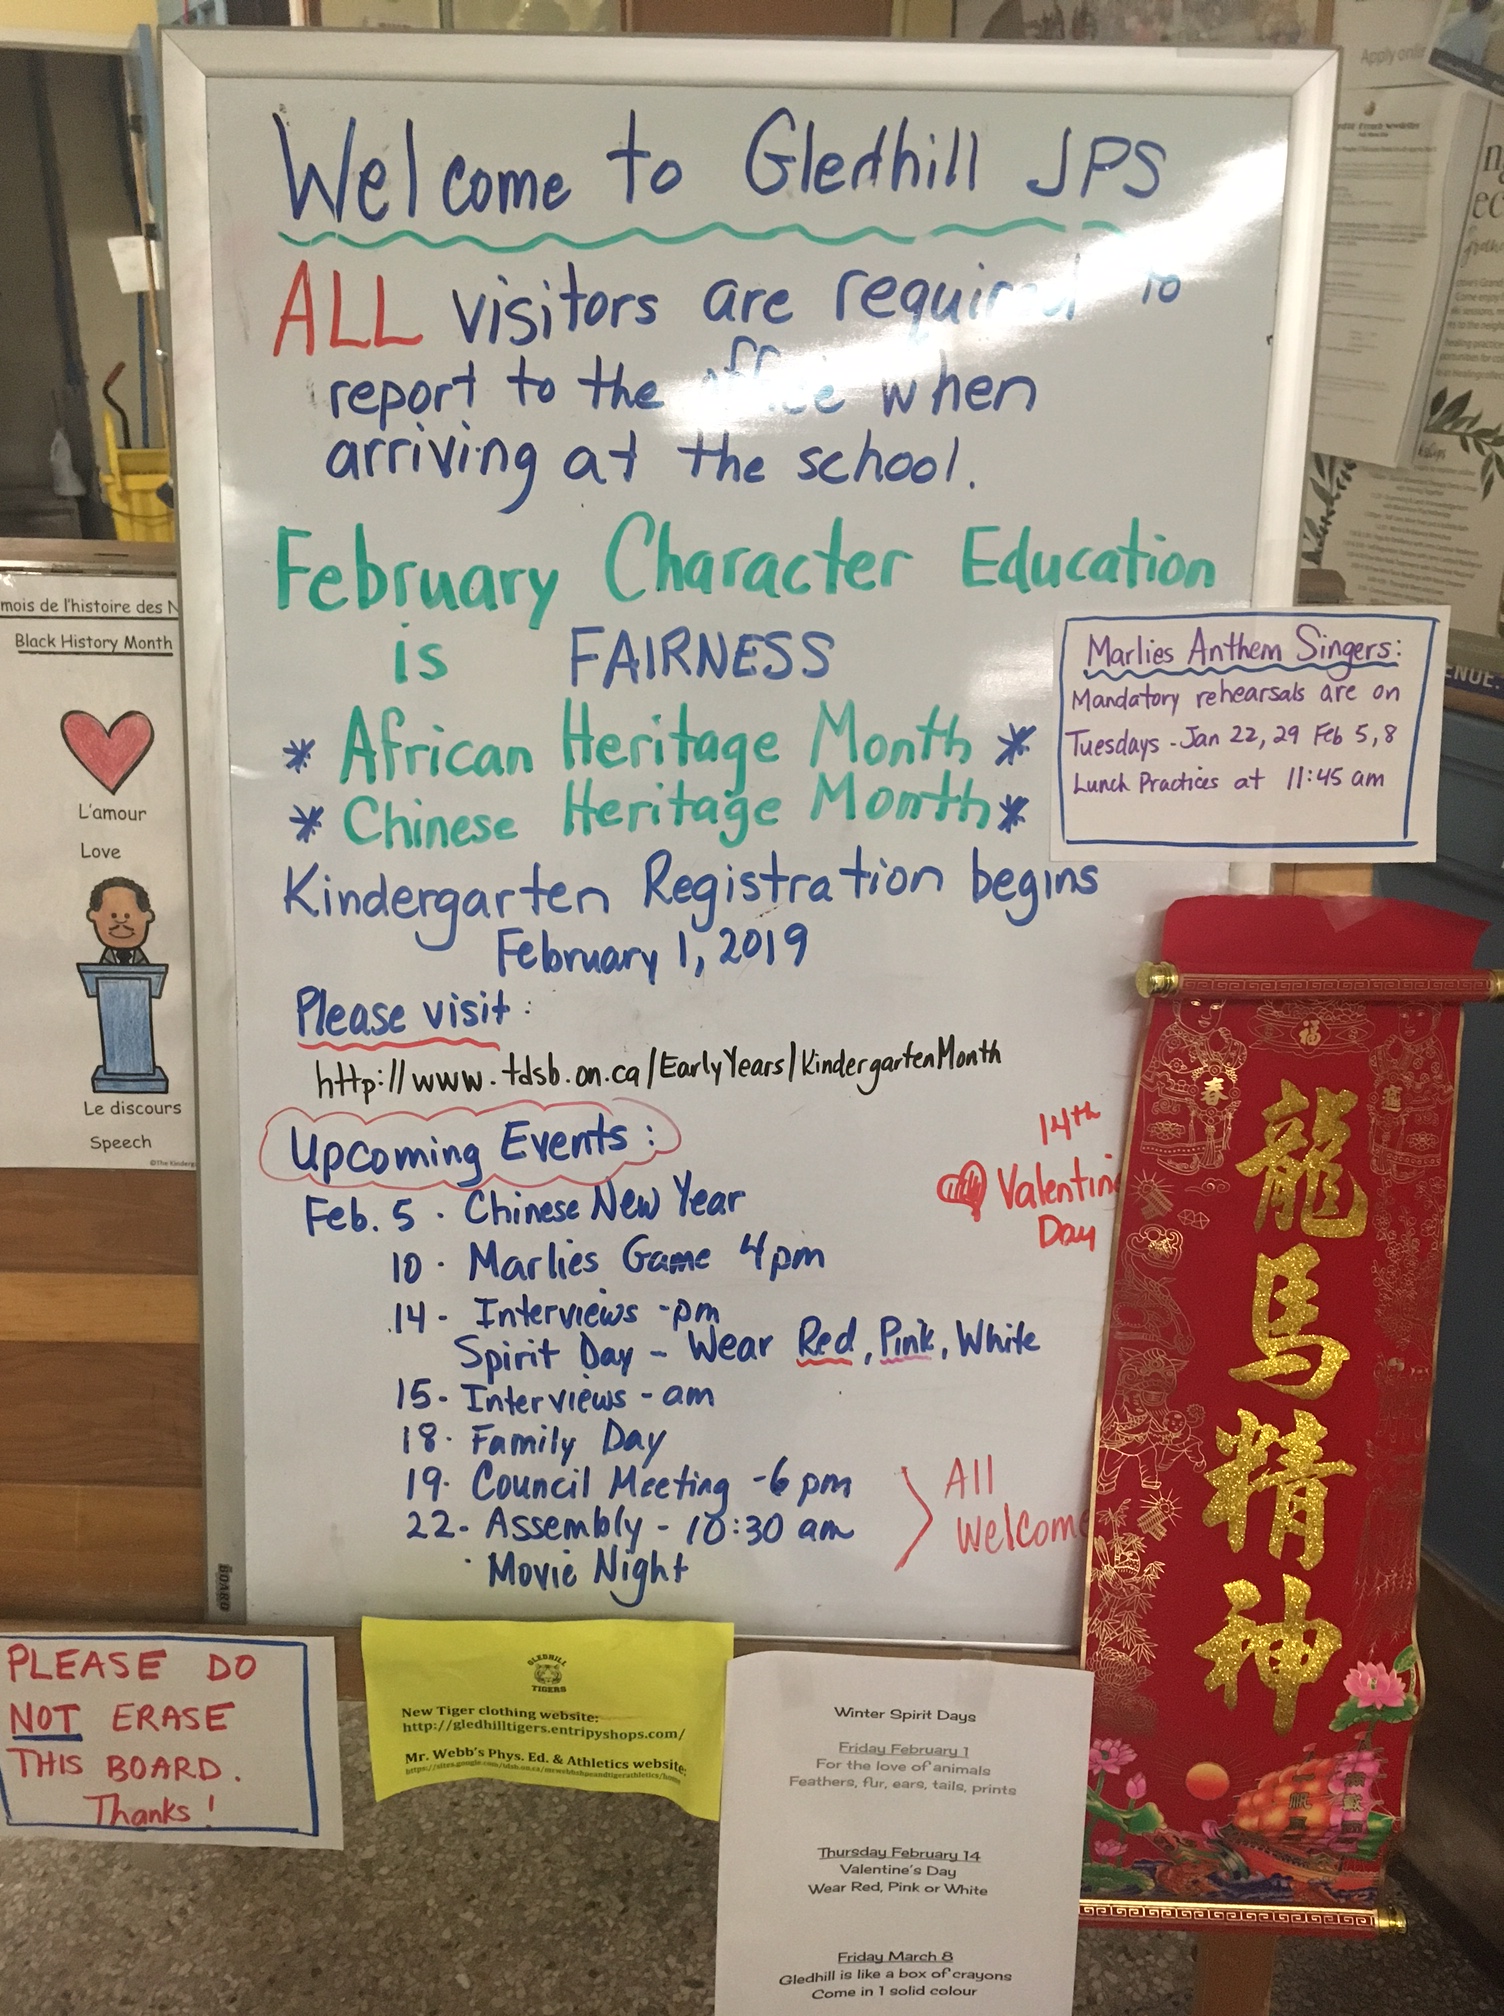 Welcome to Gledhill JPS
ALL visitors are required to
report to the office when
arriving at the school.
February Character Education
is FAIRNESS
* African Heritage Month *
* Chinese Heritage Month *
Kindergarten Registration begins
February 1, 2019
Please visit:
http://www.tdsb.on.ca/EarlyYears/KindergartenMonth
Upcoming Events:
Feb. 5 - Chinese New Year
10 - Marlies Game 4pm
14 - Interviews - pm
Spirit Day - Wear Red, Pink, White
15 - Interviews - am
18 - Family Day
19 - Council Meeting - 6 pm
22 - Assembly - 10:30 am
· Movie Night
All
Welcome
14th
Valentin
Day
BOARD
Marlies Anthem Singers:
Mandatory rehearsals are on
Tuesdays - Jan 22, 29 Feb 5, 8
Lunch Practices at 11:45 am
mois de l'histoire des N
Black History Month
L'amour
Love
Le discours
Speech
©The Kinderg
PLEASE DO
NOT ERASE
THIS BOARD.
Thanks!
GLEDHILL
TIGERS
New Tiger clothing website:
http://gledhilltigers.entripyshops.com/
Mr. Webb's Phys. Ed. & Athletics website:
Winter Spirit Days
Friday February 1
For the love of animals
Feathers, fur, ears, tails, prints
Thursday February 14
Valentine's Day
Wear Red, Pink or White
Friday March 8
Gledhill is like a box of crayons
Come in 1 solid colour
福
春
龍馬精神
Apply onli
ENUE.